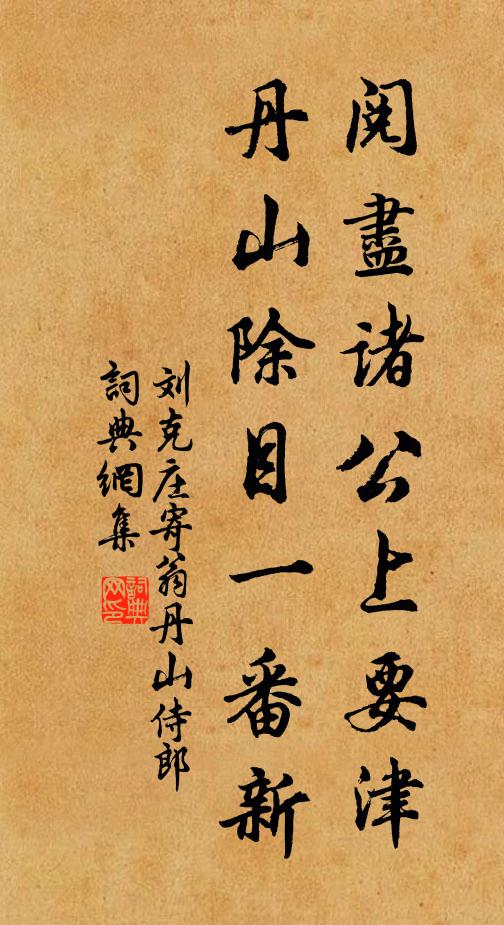 阅盡诸公上要津
丹山除目一番新
刘克庄寄翁丹山侍郎
詞典網集
詞典网印